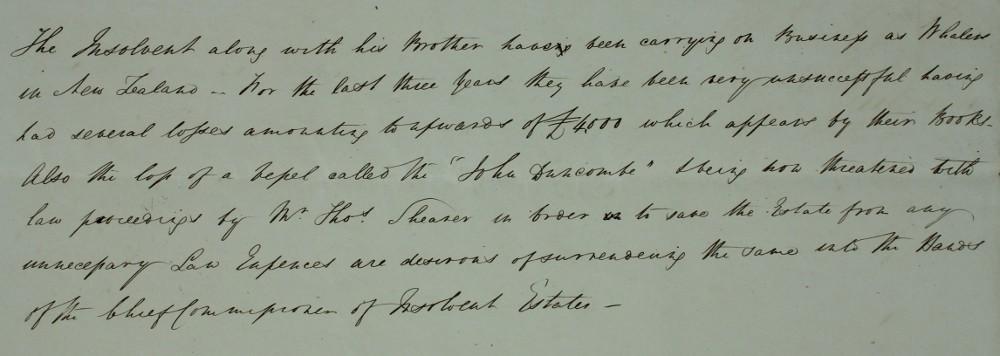 The Insolvent along with his Brother having been carrying on Business as Whalers
in New Zealand – For the last three Years they have been very unsuccessful having
had several losses amounting to upwards of £4000 which appears by their Books –
Also the loss of a vessel called the "John Duncombe" & being now threatened with
law proceedings by Mr. Thos. Shearer in order to save the Estate from any
unnecessary Law Expences are desirous of surrendering the same into the Hands
of the Chief Commissioner of Insolvent Estates –